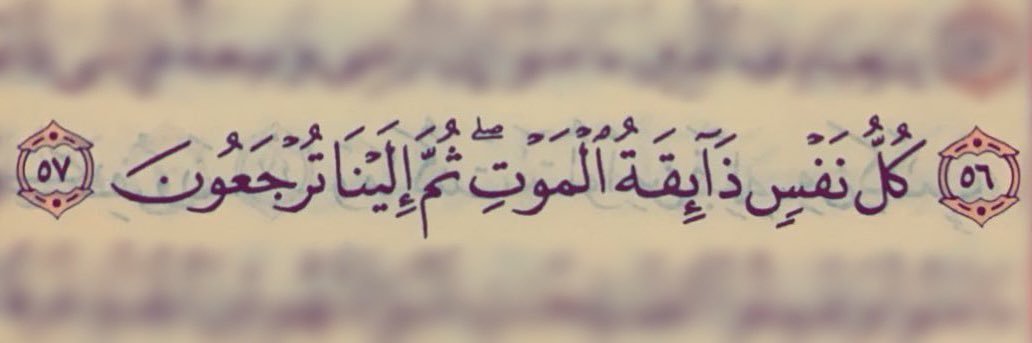 ٥٦ كُلُّ نَفْسٍ ذَآئِقَةُ ٱلْمَوْتِ ۖ ثُمَّ إِلَيْنَا تُرْجَعُونَ ٥٧